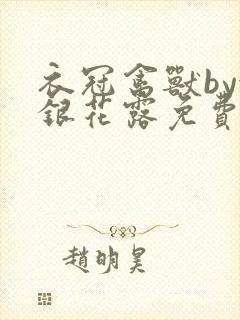 衣冠禽獸by
銀花露免費
趙明昊